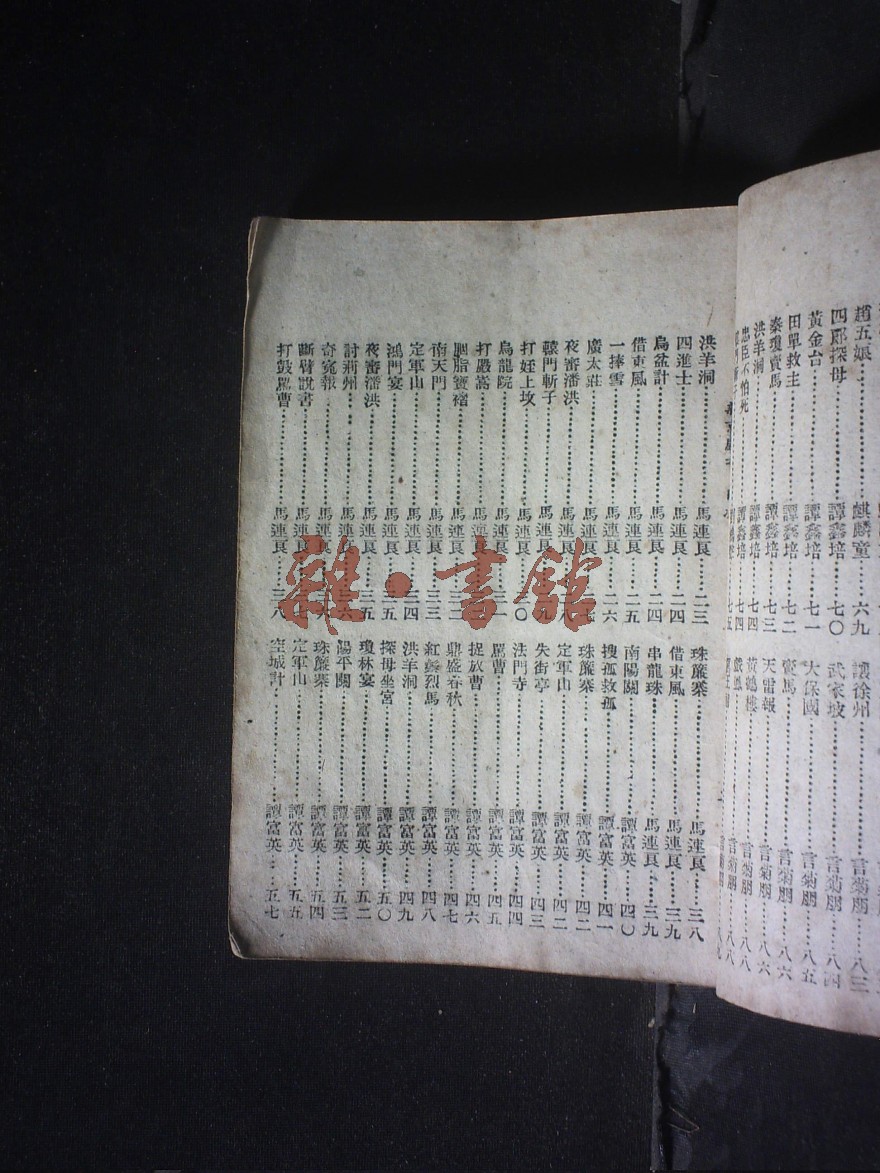 趙五娘………麒麟童……六九
四郎探母………譚鑫培……七〇
黃金台………譚鑫培……七一
田單救主………譚鑫培……七二
秦瓊賣馬………譚鑫培……七三
洪羊洞………譚鑫培……七四
忠臣不怕死………譚鑫培……七四
讓徐州………言菊朋……八三
武家坡………言菊朋……八四
大保國………言菊朋……八五
賣馬………言菊朋……八六
天雷報………言菊朋……八六
黃鶴樓………言菊朋……八八
戲鳳………言菊朋……八八
洪羊洞………馬連良……二三
四進士………馬連良……二四
烏盆計………馬連良……二四
借東風………馬連良……二五
一捧雪………馬連良……二六
廣太莊………馬連良……
夜審潘洪………馬連良……
轅門斬子………馬連良……
打姪上坟………馬連良……三〇
烏龍院………馬連良……
打嚴嵩………馬連良……
胭脂寶褶………馬連良……三二
南天門………馬連良……三三
定軍山………馬連良……三四
鴻門宴………馬連良……三五
夜審潘洪………馬連良……三五
討荊州………馬連良……三六
奇冤報………馬連良……
斷臂說書………馬連良……
打鼓罵曹………馬連良……三八
珠簾寨………馬連良……三八
借東風………馬連良……三九
串龍珠………馬連良……三九
南陽關………譚富英……四〇
搜孤救孤………譚富英……四一
珠簾寨………譚富英……四二
定軍山………譚富英……四二
失街亭………譚富英……四三
法門寺………譚富英……四四
罵曹………譚富英……四五
捉放曹………譚富英……四六
鼎盛春秋………譚富英……四七
紅鬃烈馬………譚富英……四八
洪羊洞………譚富英……四九
探母坐宮………譚富英……五〇
瓊林宴………譚富英……五二
陽平關………譚富英……五三
珠簾寨………譚富英……五四
定軍山………譚富英……五五
空城計………譚富英……五七
雜·書館